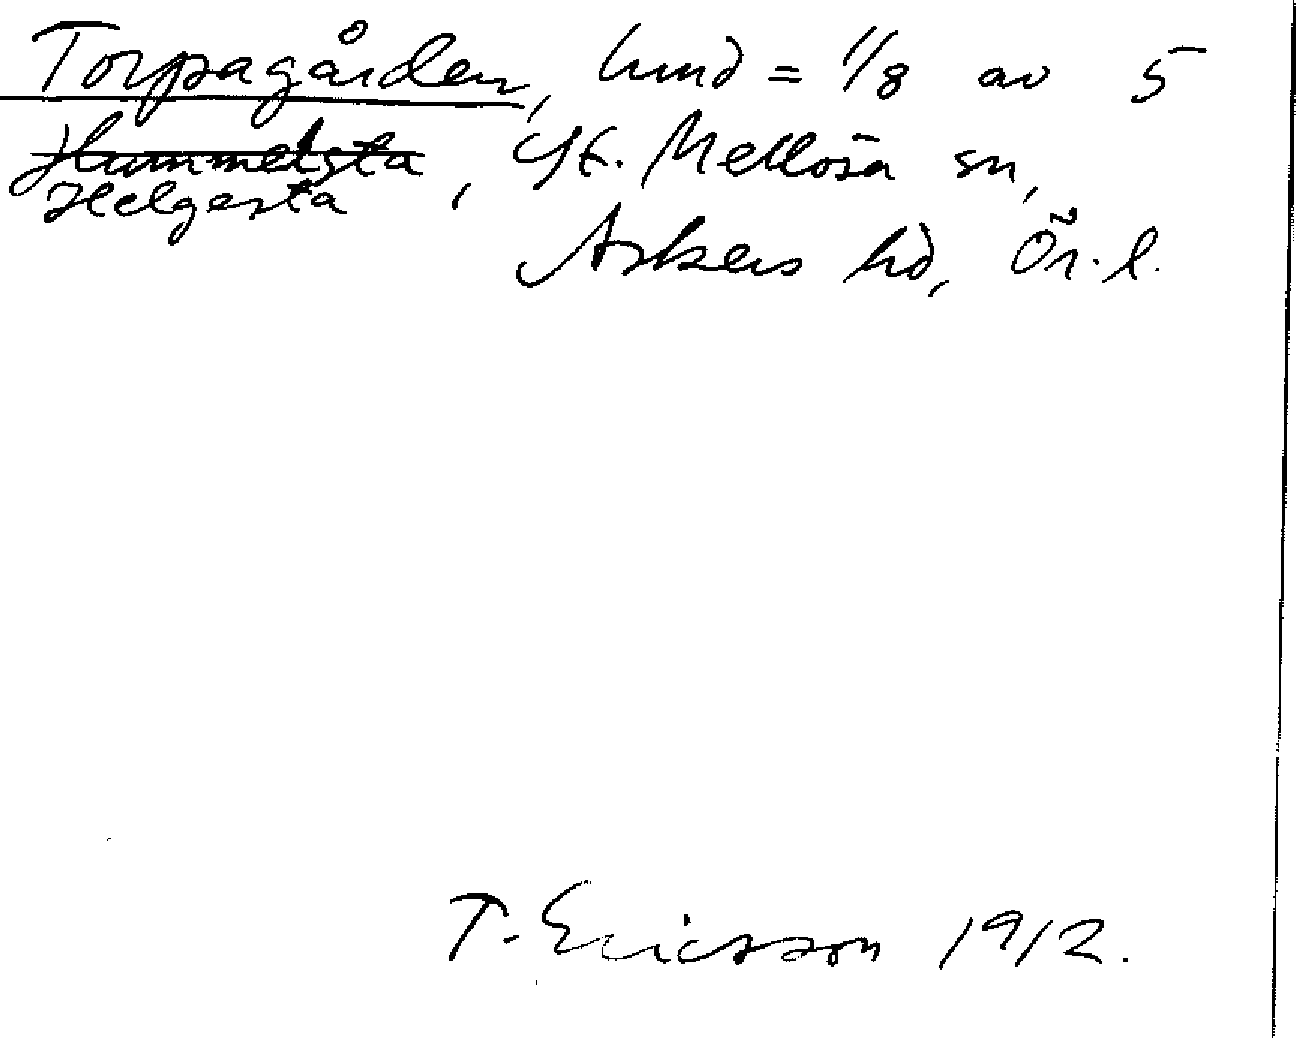 Torpagården, hmd = 1/8 av 5
Hummelsta, St. Mellösa sn,
Helgesta
Askers hd, Ör. l.
T. Ericsson 1912.